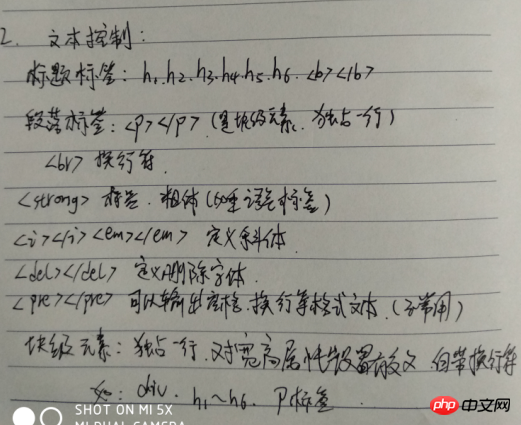 2. 文本控制:
标题标签: h1.h2.h3.h4.h5.h6. <b></b>
段落标签: <p></p> (是块级元素、独占一行)
<br> 换行符.
<strong> 标签. 粗体 (加重语气标签)
<i></i><em></em> 定义斜体.
<del></del> 定义删除字体.
<pre></pre> 可以输出空格.换行等格式文本. (不常用)
块级元素: 独占一行. 对宽高属性设置有效. 自带换行符
如: div. h1~h6. p标签.
SHOT ON MI 5X
MI DUAL CAMERA
php 中文网